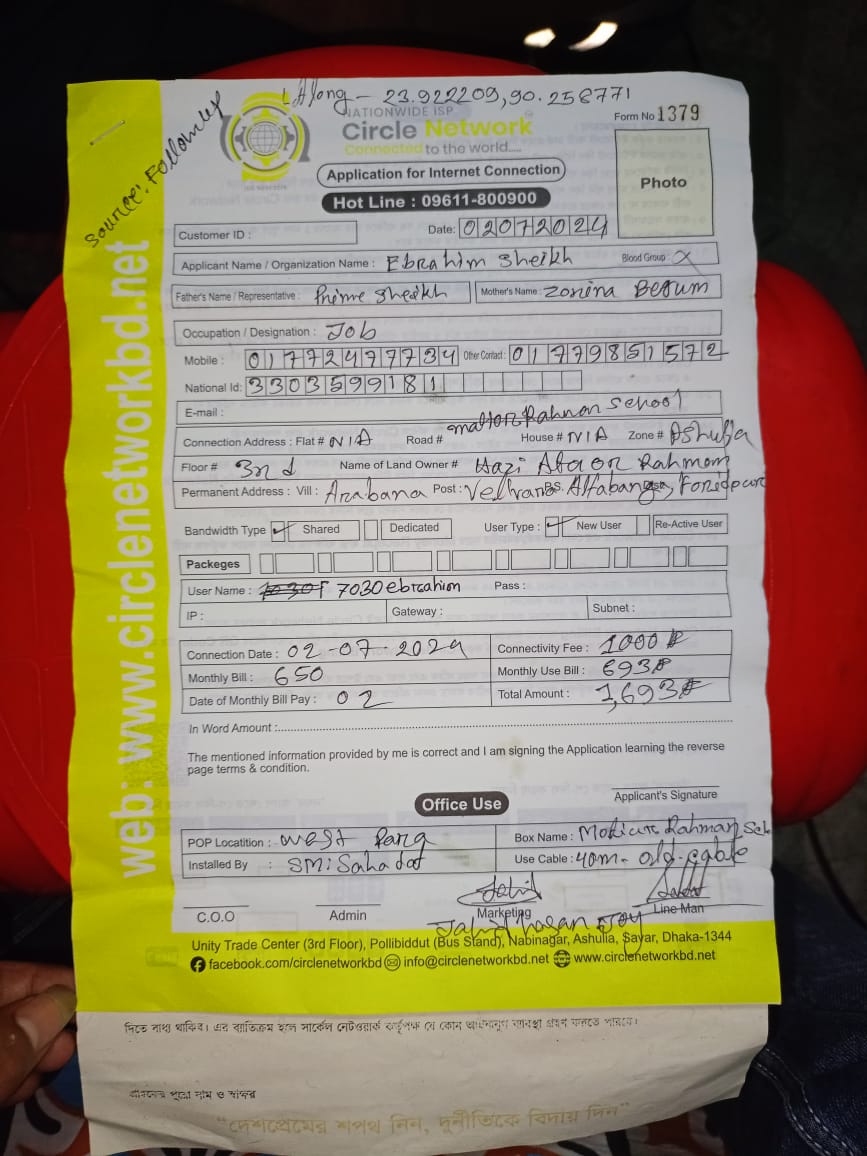 Lålong - 23.922209,90.258771
Source: Followup
NATIONWIDE ISP
Circle Network
Connected to the world....
Form No 1379
Application for Internet Connection
Photo
Hot Line : 09611-800900
Customer ID :
Date: 02072024
Applicant Name / Organization Name : Ebrahim Sheikh Blood Group : X
Father's Name / Representative : Prime Sheikh Mother's Name : Zorina Begum
Occupation / Designation : Job
Mobile : 01772477734 Other Contact : 01779851572
National Id: 3303599181
E-mail :
Connection Address : Flat # N/A Road # Rahman School House # N/A Zone # Ashulia
Floor # 3rd Name of Land Owner # Hazi Ataor Rahman
Permanent Address : Vill : Arabana Post : P.S. Alfabanga, Foridpur
Bandwidth Type ✓ Shared Dedicated User Type : ✓ New User Re-Active User
Packeges
User Name : 7030ebrahim Pass :
IP : Gateway : Subnet :
Connection Date : 02-07-2024 Connectivity Fee : 1000
Monthly Bill : 650 Monthly Use Bill : 693
Date of Monthly Bill Pay : 02 Total Amount : 1,693
In Word Amount :
The mentioned information provided by me is correct and I am signing the Application learning the reverse
page terms & condition.
Applicant's Signature
Office Use
POP Locatition : West Para Box Name : Rahman Sch
Installed By : SM: Sahadot Use Cable : 40m - old-cable
C.O.O Admin Marketing Line Man
Jahid Hasan Joy
Unity Trade Center (3rd Floor), Pollibiddut (Bus Stand), Nabinagar, Ashulia, Savar, Dhaka-1344
facebook.com/circlenetworkbd info@circlenetworkbd.net www.circlenetworkbd.net
web: www.circlenetworkbd.net
দিতে বাধ্য থাকিব। এর ব্যতিক্রম হলে সার্কেল নেটওয়ার্ক কর্তৃপক্ষ যে কোন আইনানুগ ব্যবস্থা গ্রহন করতে পারবে।
গ্রাহকের পুরো নাম ও স্বাক্ষর
"দেশপ্রেমের শপথ নিন, দুর্নীতিকে বিদায় দিন"